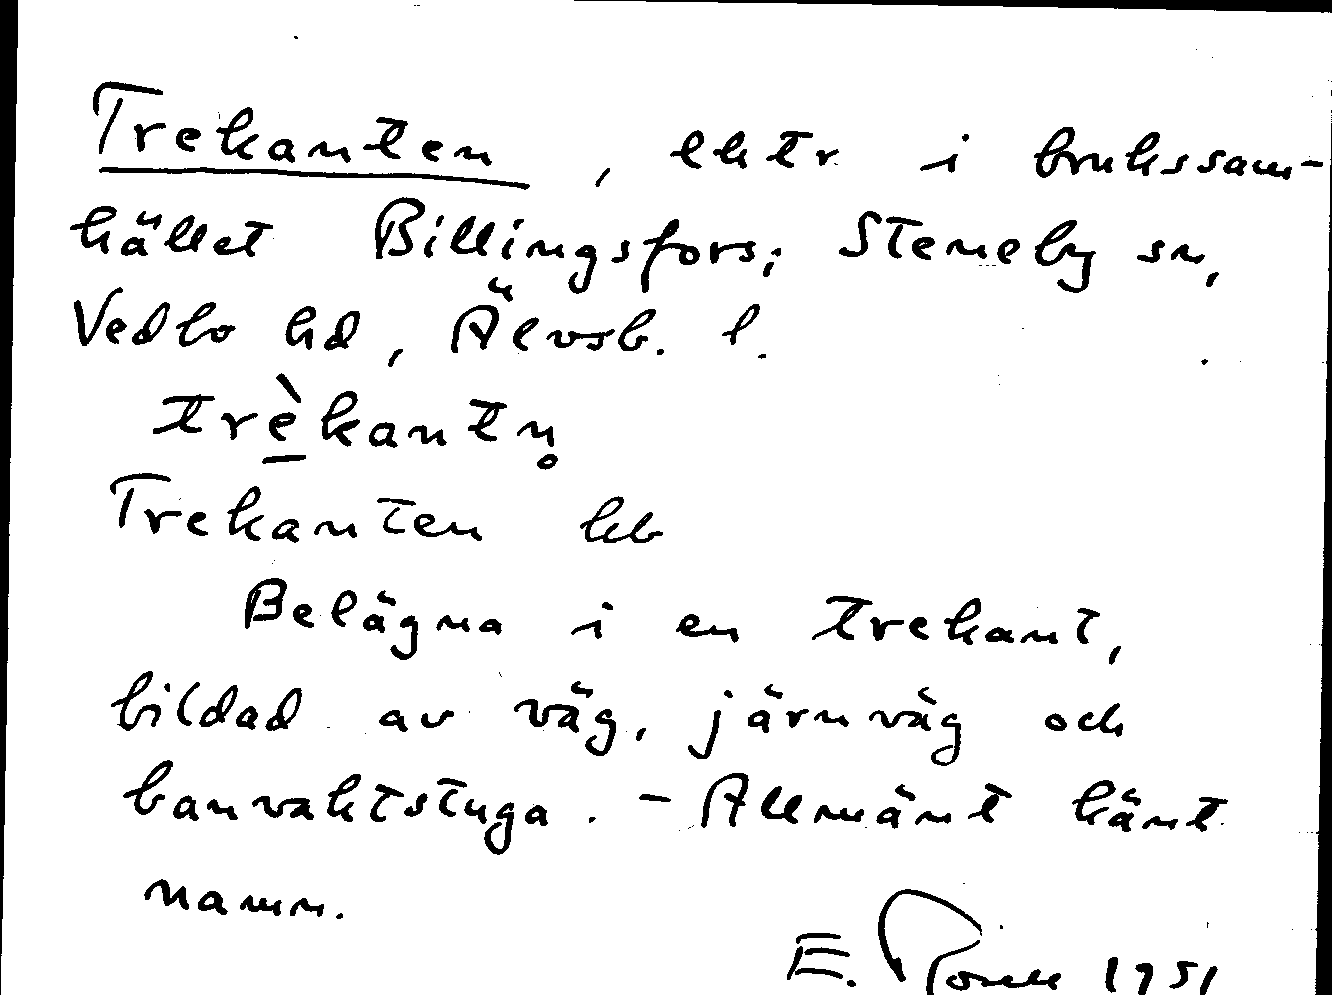 Trekanten, lhtr i brukssam-
hället Billingsfors, Steneby sn,
Vedbo hd, Älvsb. l.
trè̲kantn̥
Trekanten kb
Belägna i en trekant,
bildad av väg, järnväg och
banvaktstuga. - Allmänt känt
namn.
E. 1951